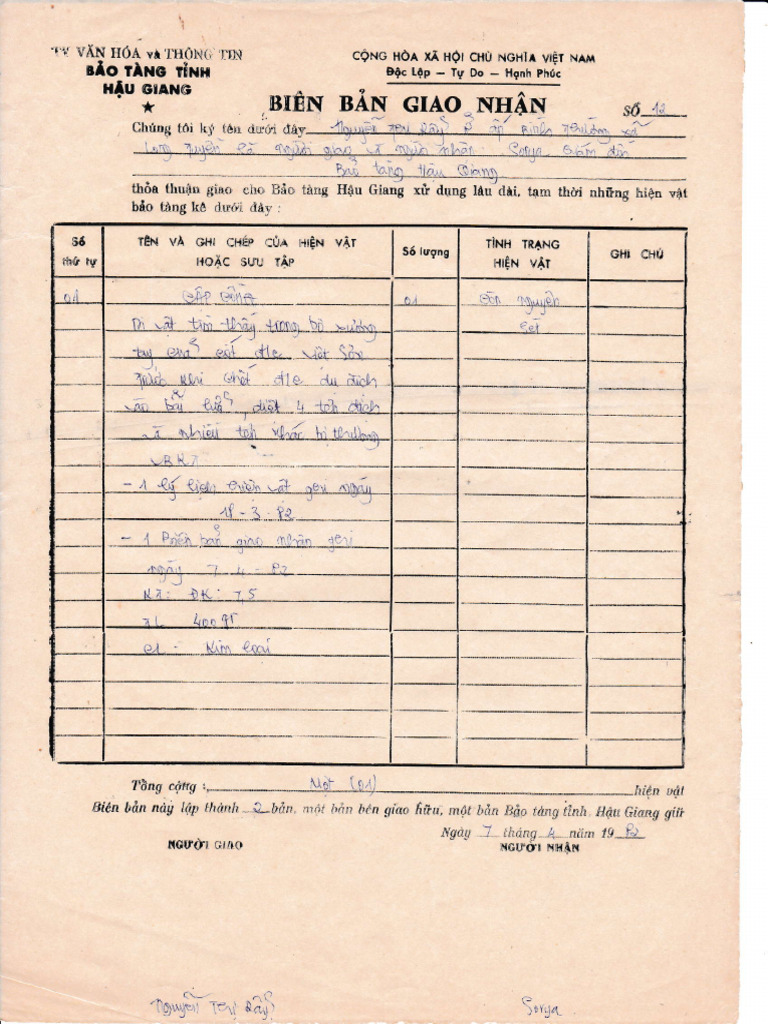 TY VĂN HÓA và THÔNG TIN
BẢO TÀNG TỈNH
HẬU GIANG
★
CỘNG HÒA XÃ HỘI CHỦ NGHĨA VIỆT NAM
Độc Lập — Tự Do — Hạnh Phúc
BIÊN BẢN GIAO NHẬN
SỐ 12
Chúng tôi ký tên dưới đây Nguyễn Thị Dây Ở ấp Bình Thường xã
Long Tuyền là người giao và người nhận. Sorya Giám đốc
Bảo tàng Hậu Giang
thỏa thuận giao cho Bảo tàng Hậu Giang xử dụng lâu dài, tạm thời những hiện vật
bảo tàng kê dưới đây :
Số thứ tự
TÊN VÀ GHI CHÉP CỦA HIỆN VẬT HOẶC SƯU TẬP
Số lượng
TÌNH TRẠNG HIỆN VẬT
GHI CHÚ
01 CẶP CÒNG 01 Còn nguyên
Di vật tìm thấy trong bộ xương sét
tay của cốt đ/c Việt Sơn
trước khi chết đ/c dụ địch
vào bãi lựu, diệt 4 tên địch
và nhiều tên khác bị thương
- 1 lý lịch hiện vật ghi ngày
18-3-82
- 1 Biên bản giao nhận ghi
ngày 7-4-82
KT: ĐK: 7,5
TL 400gr
CL. Kim loại
Tổng cộng : Một (01) hiện vật
Biên bản này lập thành 2 bản, một bản bên giao hữu, một bản Bảo tàng tỉnh, Hậu Giang giữ
Ngày 7 tháng 4 năm 19 82
NGƯỜI GIAO
NGƯỜI NHẬN
Nguyễn Thị Dây
Sorya